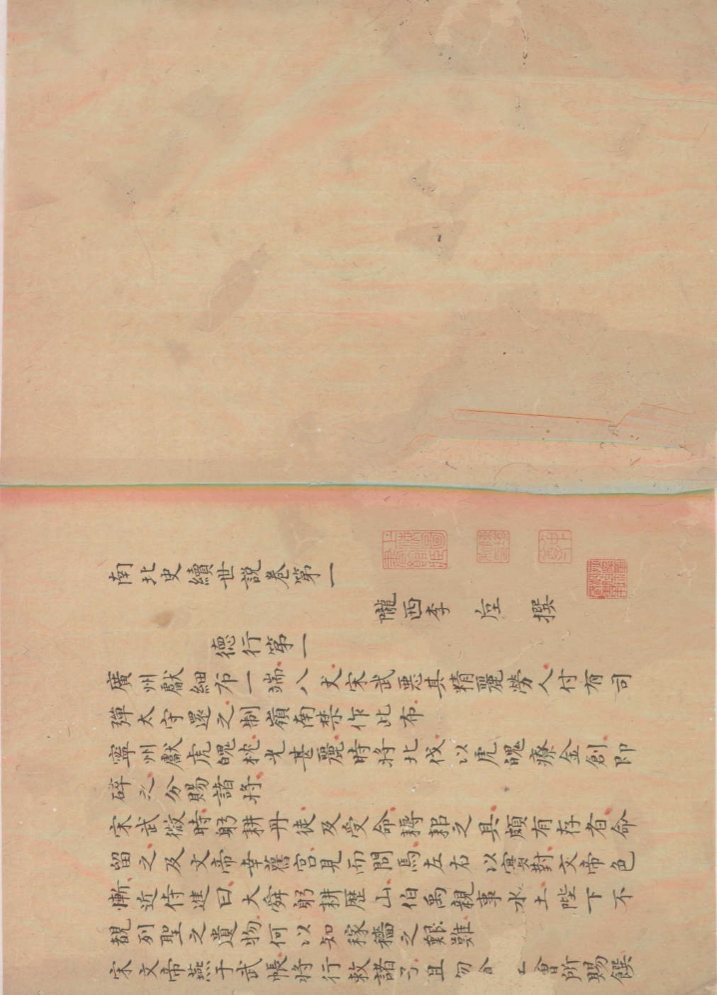 南北史續世説卷第一
隴西李 垕 撰
德行第一
廣州獻細布一端八丈宋武惡其精麗勞人付有司
彈太守還之制嶺南禁作此布
寧州獻虎魄枕光甚麗時將北伐以虎魄療金創即
碎之分賜諸將
宋武微時躬耕丹徒及受命耨耜之具頗有存者命
留之及文帝幸舊宮見而問焉左右以實對文帝色
慚近侍進曰大舜躬耕歷山伯禹親事水土陛下不
覩列聖之遺物何以知稼穡之艱難
宋文帝燕于武帳將行敕諸子且勿 會所賜饌